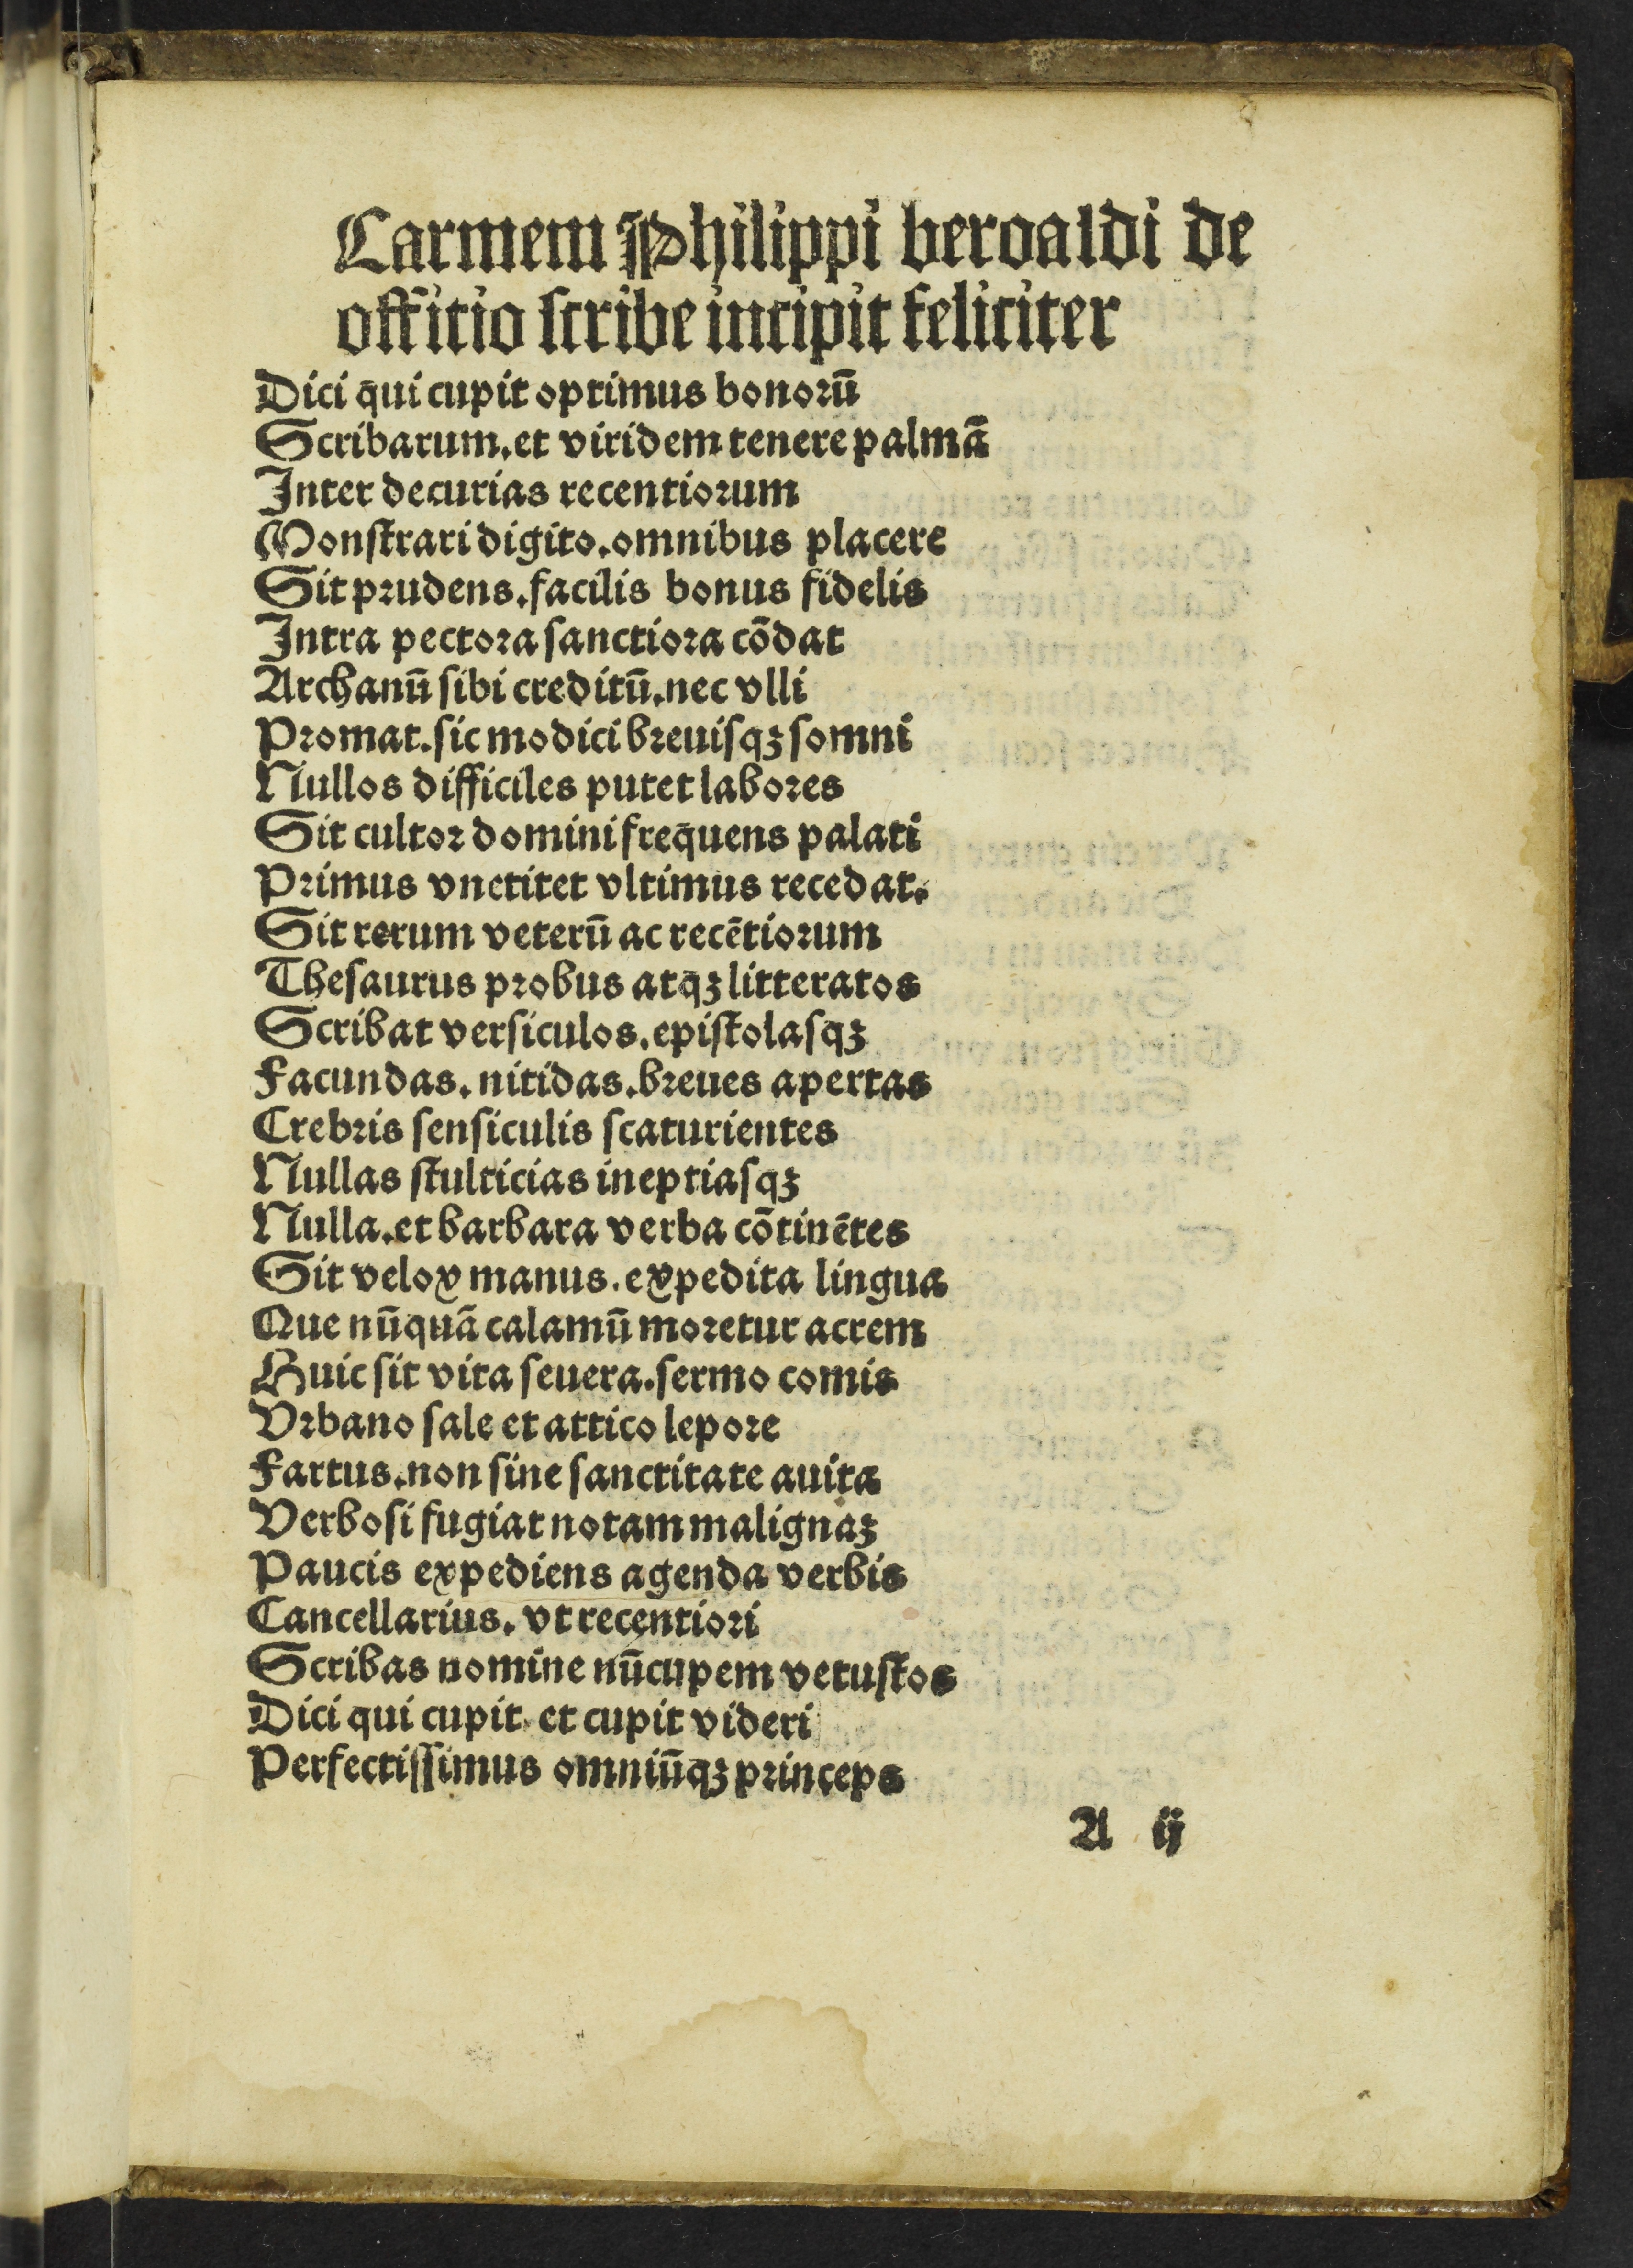 Carmem Philippi beroaldi de
offitio scribe incipit feliciter
Dici q̄ui cupit optimus bonorū
Scribarum.et viridem tenere palmā
Inter decurias recentiorum
Monstrari digito.omnibus placere
Sit prudens.facilis bonus fidelis
Intra pectora sanctiora cōdat
Archanū sibi creditū.nec vlli
Promat.sic modici breuisqꝫ somni
Nullos difficiles putet labores
Sit cultor domini freq̄uens palati
Primus vnctitet vltimus recedat.
Sit rerum veterū ac recētiorum
Thesaurus probus atq̄ꝫ litteratos
Scribat versiculos.epistolasqꝫ
Facundas.nitidas.breues apertas
Crebris sensiculis scaturientes
Nullas stulticias ineptiasqꝫ
Nulla.et barbara verba cōtinētes
Sit velox manus.expedita lingua
Que nūquā calamū moretur acrem
Huic sit vita seuera.sermo comis
Vrbano sale et attico lepore
Fartus.non sine sanctitate auita
Verbosi fugiat notam malignaꝫ
Paucis expediens agenda verbis
Cancellarius.vt recentiori
Scribas nomine nūcupem vetustos
Dici qui cupit.et cupit videri
Perfectissimus omniūqꝫ princeps
A ij